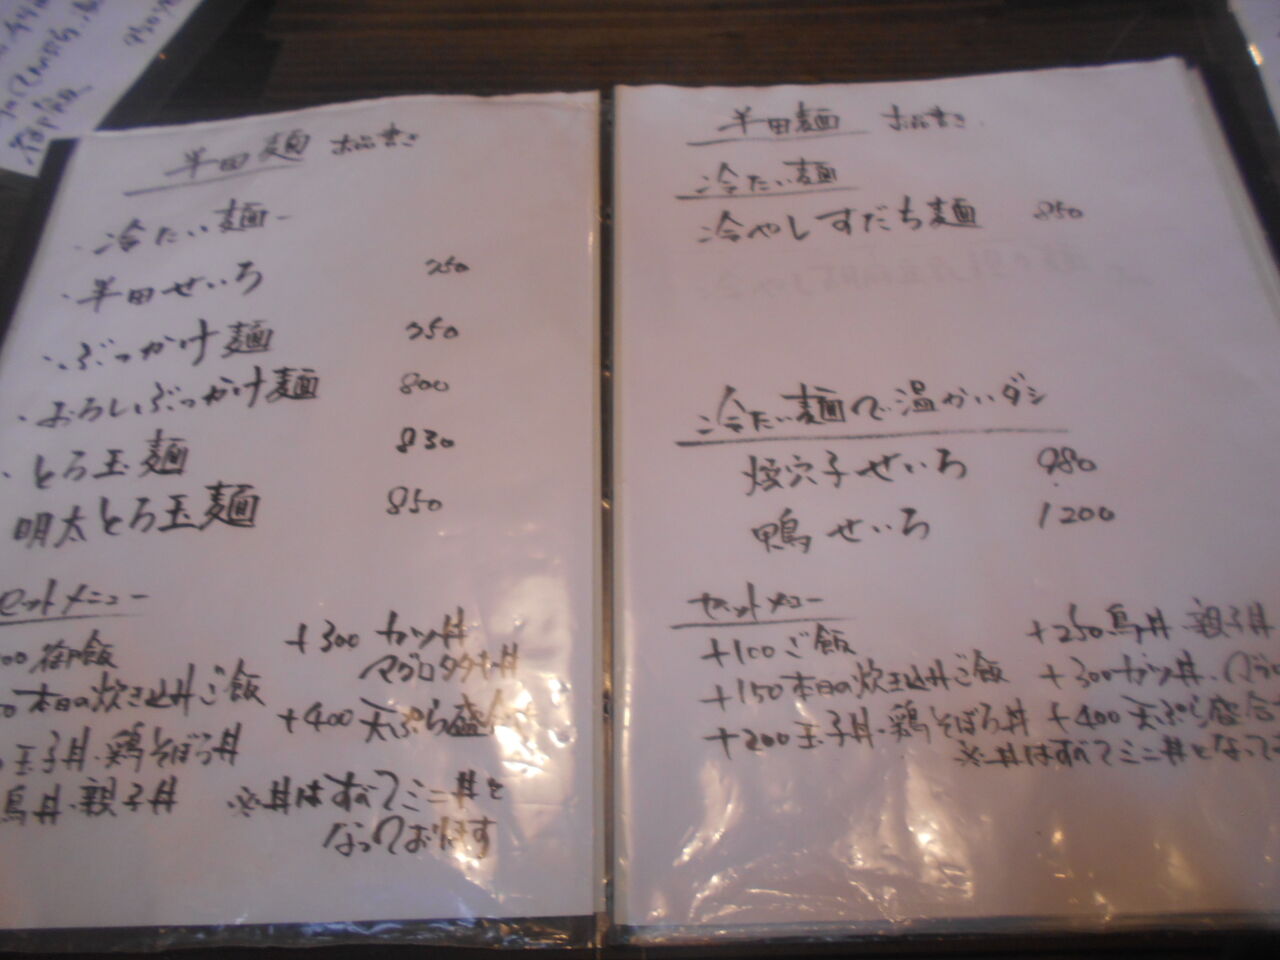 半田麺 お品書き
・冷たい麺
・半田せいろ 750
・ぶっかけ麺 750
・おろしぶっかけ麺 800
・とろ玉麺 830
明太とろ玉麺 850
セットメニュー
00 御飯
50 本日の炊き込みご飯
0 玉子丼・鶏そぼろ丼
鳥丼・親子丼
+300 カツ丼
マグロタタキ丼
+400 天ぷら盛合
※丼はすべてミニ丼と
なっております
半田麺 お品書き
冷たい麺
冷やしすだち麺 850
冷たい麺で温かいダシ
焼穴子せいろ 980
鴨せいろ 1200
セットメニュー
+100 ご飯
+150 本日の炊き込みご飯
+200 玉子丼・鶏そぼろ丼
+250 鳥丼 親子丼
+300 カツ丼・マグロ
+400 天ぷら盛合
※丼はすべてミニ丼となって